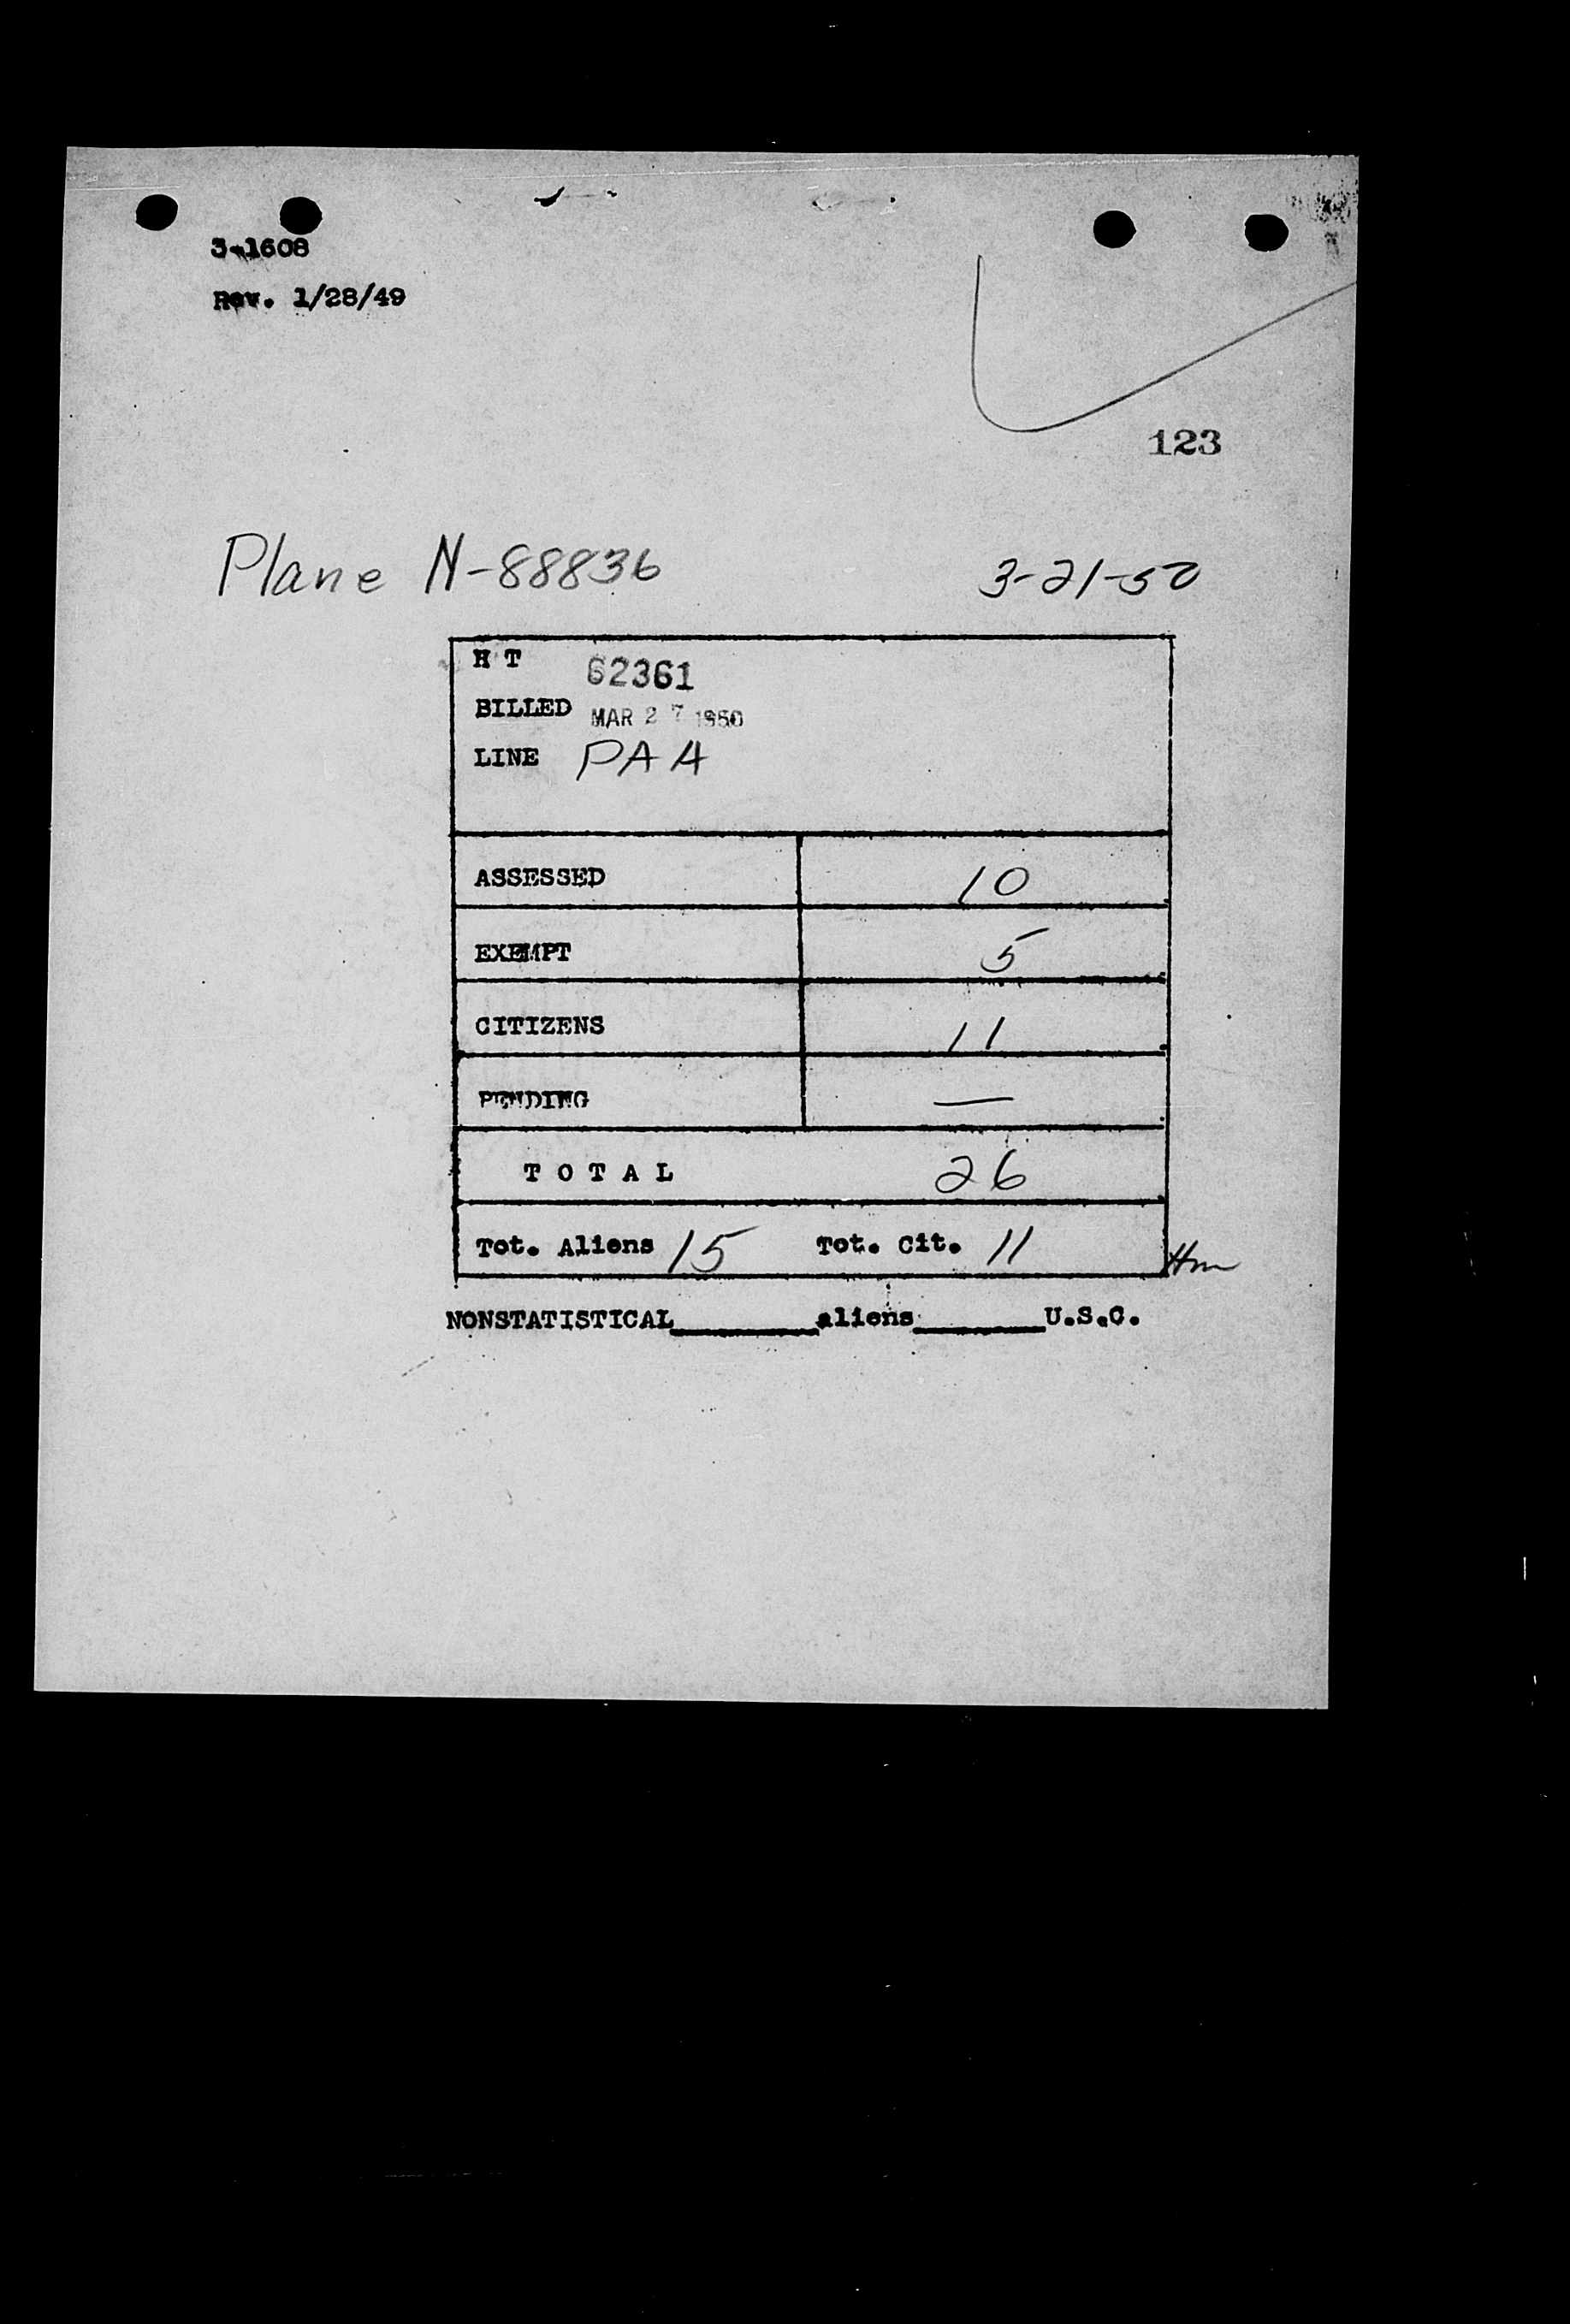 3-1608
Rev. 1/28/49
123
Plane N-88836 3-21-50
H T 62361
BILLED MAR 27 1950
LINE PAA
ASSESSED 10
EXEMPT 5
CITIZENS 11
PENDING —
TOTAL 26
Tot. Aliens 15 Tot. Cit. 11
NONSTATISTICAL________aliens________U.S.C.